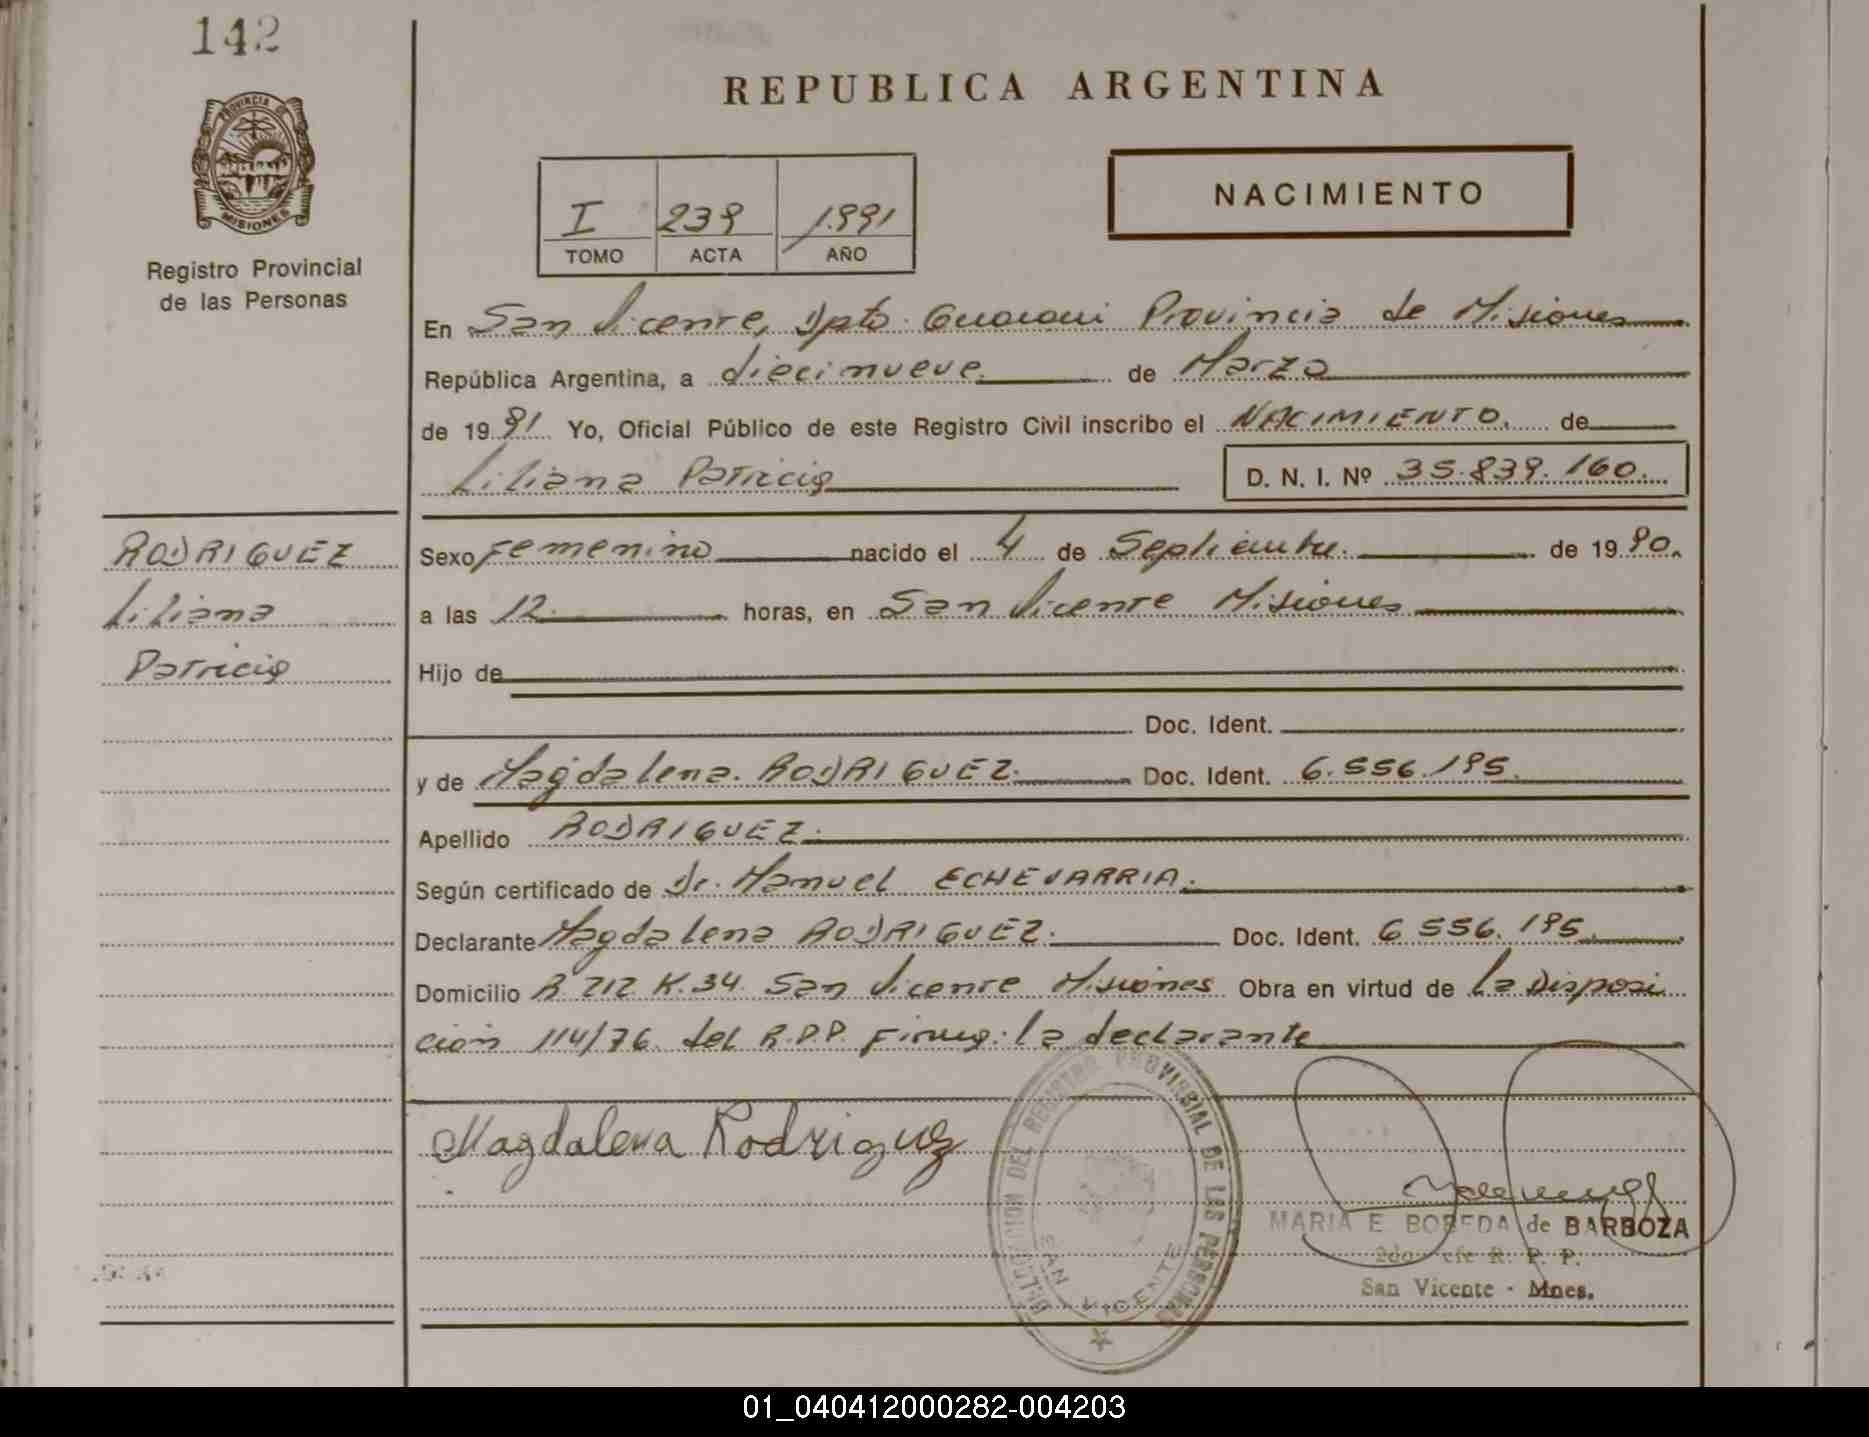 142
REPUBLICA ARGENTINA
PROVINCIA DE
MISIONES
Registro Provincial
de las Personas
NACIMIENTO
I 239 1.991
TOMO ACTA AÑO
En San Vicente, Dpto. Guarani Provincia de Misiones
República Argentina, a diecinueve de Marzo
de 1991 Yo, Oficial Público de este Registro Civil inscribo el NACIMIENTO. de
Liliana Patricia D. N. I. Nº 35.839.160.
RODRIGUEZ
Liliana
Patricia
Sexo Femenino nacido el 4 de Septiembre. de 1990.
a las 12 horas, en San Vicente Misiones
Hijo de
Doc. Ident.
y de Magdalena. RODRIGUEZ. Doc. Ident. 6.556.195.
Apellido RODRIGUEZ.
Según certificado de Dr. Manuel ECHEVARRIA.
Declarante Magdalena RODRIGUEZ. Doc. Ident. 6 556.195.
Domicilio R 212 K.34. San Vicente Misiones Obra en virtud de la Disposi
ción 114/76. del R.P.P. Firma: la declarante
Magdalena Rodriguez
DELEGACION DEL REGISTRO PROVINCIAL DE LAS PERSONAS
SAN VICENTE
MARIA E. BOBEDA de BARBOZA
R. P. P.
San Vicente - Mnes.
01_040412000282-004203